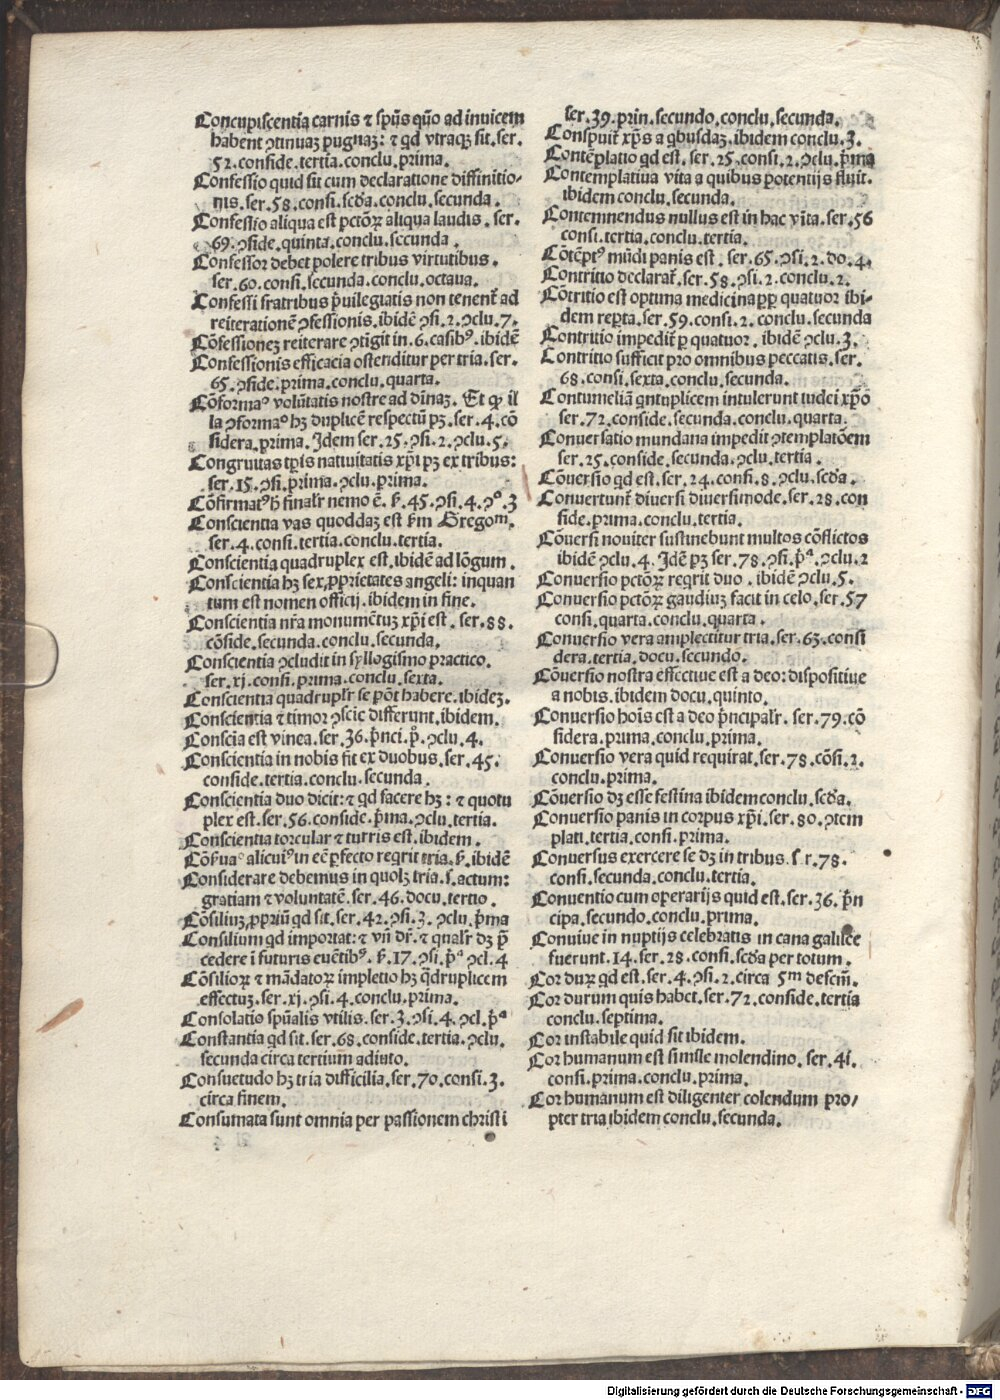 Concupiscentia carnis ⁊ spũs quō ad inuicem
habent ↄtinuaꝫ pugnaꝫ: ⁊ qd vtraqꝫ sit. ser.
52. conside. tertia. conclu. prima.
Confessio quid sit cum declaratione diffinitio-
nis. ser. 58. consi. scđa. conclu. secunda.
Confessio aliqua est pctōꝝ aliqua laudis. ser.
69. ↄside. quinta. conclu. secunda.
Confessor debet polere tribus virtutibus.
ser. 60. consi. secunda. conclu. octaua.
Confessi fratribus p̄uilegiatis non tenent̄ ad
reiterationē ↄfessionis. ibidē ↄsi. 2. ↄclu. 7.
Cōfessioneꝫ reiterare ↄtigit in. 6. casibꝰ. ibidē
Confessionis efficacia ostenditur per tria. ser.
65. ↄside. prima. conclu. quarta.
Cōformaᵒ volūtatis nostre ad diuinaꝫ. Et qꝫ il
la ↄformaᵒ hꝫ duplicē respectū pꝫ. ser. 4. cō
sidera. prima. Idem ser. 25. ↄsi. 2. ↄclu. 5.
Congruitas tp̄is natiuitatis xp̄i pꝫ ex tribus:
ser. 15. ↄsi. p̄rima. ↄclu. prima.
Cōfirmatꝰ h̄ finalr̄ nemo ē. ẜ. 45. ↄsi. 4. ↄᵒ. 3
Conscientia vas quoddaꝫ est ẜm Gregoᵐ.
ser. 4. consi. tertia. conclu. tertia.
Conscientia quadruplex est. ibidē ad lōgum.
Conscientia hꝫ sex ꝓprietates angeli: inquan
tum est nomen officij. ibidem in fine.
Conscientia nr̄a monumētuꝫ xp̄i est. ser. 88.
cōside. secunda. conclu. secunda.
Conscientia ↄcludit in syllogismo practico.
ser. xj. consi. prima. conclu. sexta.
Conscientia quadruplr̄ se pōt habere. ibideꝫ.
Conscientia ⁊ timor ↄscie differunt. ibidem.
Conscia est vinea. ser. 36. p̄nci. p̄. ↄclu. 4.
Conscientia in nobis fit ex duobus. ser. 45.
conside. tertia. conclu. secunda.
Conscientia duo dicit: ⁊ qd facere hꝫ: ⁊ quotu
plex est. ser. 56. conside. p̄ma. ↄclu. tertia.
Conscientia torcular ⁊ turris est. ibidem.
Cōẜuaᵒ alicuiꝰ in eē ꝑfecto reqrit tria. ẜ. ibidē
Considerare debemus in quolꝫ tria. s. actum:
gratiam ⁊ voluntatē. ser. 46. docu. tertio.
Cōsiliuꝫ ꝓpriū qd sit. ser. 42. ↄsi. 3. ↄclu. p̄ma
Consilium qd importat: ⁊ vn̄ dr̄. ⁊ qualr̄ dꝫ p̄
cedere ī futuris euētibꝰ. ẜ. 17. ↄsi. p̄ᵃ ↄcl. 4
Cōsilioꝝ ⁊ mādatoꝝ impletio hꝫ q̄druplicem
effectuꝫ. ser. xj. ↄsi. 4. conclu. prima.
Consolatio spūalis vtilis. ser. 3. ↄsi. 4. ↄcl. p̄ᵃ
Constantia qd sit. ser. 68. conside. tertia. ↄclu.
secunda circa tertium adiuto.
Consuetudo hꝫ tria difficilia. ser. 70. consi. 3.
circa finem.
Consumata sunt omnia per passionem christi
ser. 39. prin. secundo. conclu. secunda.
Conspuit̄ xp̄s a qbusdaꝫ. ibidem conclu. 3.
Contēplatio qd est. ser. 25. consi. 2. ↄclu. p̄ma
Contemplatiua vita a quibus potentijs fluit.
ibidem conclu. secunda.
Contemnendus nullus est in hac vita. ser. 56
consi. tertia. conclu. tertia.
Cōtēptꝰ mūdi panis est. ser. 65. ↄsi. 2. do. 4.
Contritio declarat̄. ser. 58. ↄsi. 2. conclu. 2.
Cōtritio est optima medicina ꝓp quatuor ibi-
dem reperta. ser. 59. consi. 2. conclu. secunda
Contritio impedit̄ ꝑ quatuor. ibidē ↄclu. 3.
Contritio sufficit pro omnibus peccatis. ser.
68. consi. sexta. conclu. secunda.
Contumeliā qntuplicem intulerunt iudei xp̄o
ser. 72. conside. secunda. conclu. quarta.
Conuersatio mundana impedit ↄtemplatōem
ser. 25. conside. secunda. ↄclu. tertia.
Cōuersio qd est. ser. 24. consi. 8. ↄclu. scđa.
Conuertunt̄ diuersi diuersimode. ser. 28. con
side. prima. conclu. tertia.
Cōuersi nouiter sustinebunt multos cōflictos
ibidē ↄclu. 4. Idē pꝫ ser. 78. ↄsi. p̄ᵃ. ↄclu. 2
Conuersio pctōꝝ reqrit duo. ibidē ↄclu. 5.
Conuersio pctōꝝ gaudiuꝫ facit in celo. ser. 57
consi. quarta. conclu. quarta.
Conuersio vera amplectitur tria. ser. 63. consi
dera. tertia. docu. secundo.
Cōuersio nostra effectiue est a deo: dispositiue
a nobis. ibidem docu. quinto.
Conuersio hoīs est a deo p̄ncipalr̄. ser. 79. cō
sidera. prima. conclu. prima.
Conuersio vera quid requirat. ser. 78. cōsi. 2.
conclu. prima.
Cōuersio dꝫ esse festina ibidem conclu. scđa.
Conuersio panis in corpus xp̄i. ser. 80. ↄtem
plati. tertia. consi. prima.
Conuersus exercere se dꝫ in tribus. s r. 78.
consi. secunda. conclu. tertia.
Conuentio cum operarijs quid est. ser. 36. p̄n
cipa. secundo. conclu. prima.
Conuiue in nuptijs celebratis in cana galilee
fuerunt. 14. ser. 28. consi. scđa per totum.
Cor duꝝ qd est. ser. 4. ↄsi. 2. circa 5ᵐ descm̄.
Cor durum quis habet. ser. 72. conside. tertia
conclu. septima.
Cor instabile quid sit ibidem.
Cor humanum est simile molendino. ser. 41.
consi. prima. conclu. prima.
Cor humanum est diligenter colendum pro/
pter tria ibidem conclu. secunda.
Digitalisierung gefördert durch die Deutsche Forschungsgemeinschaft - DFG